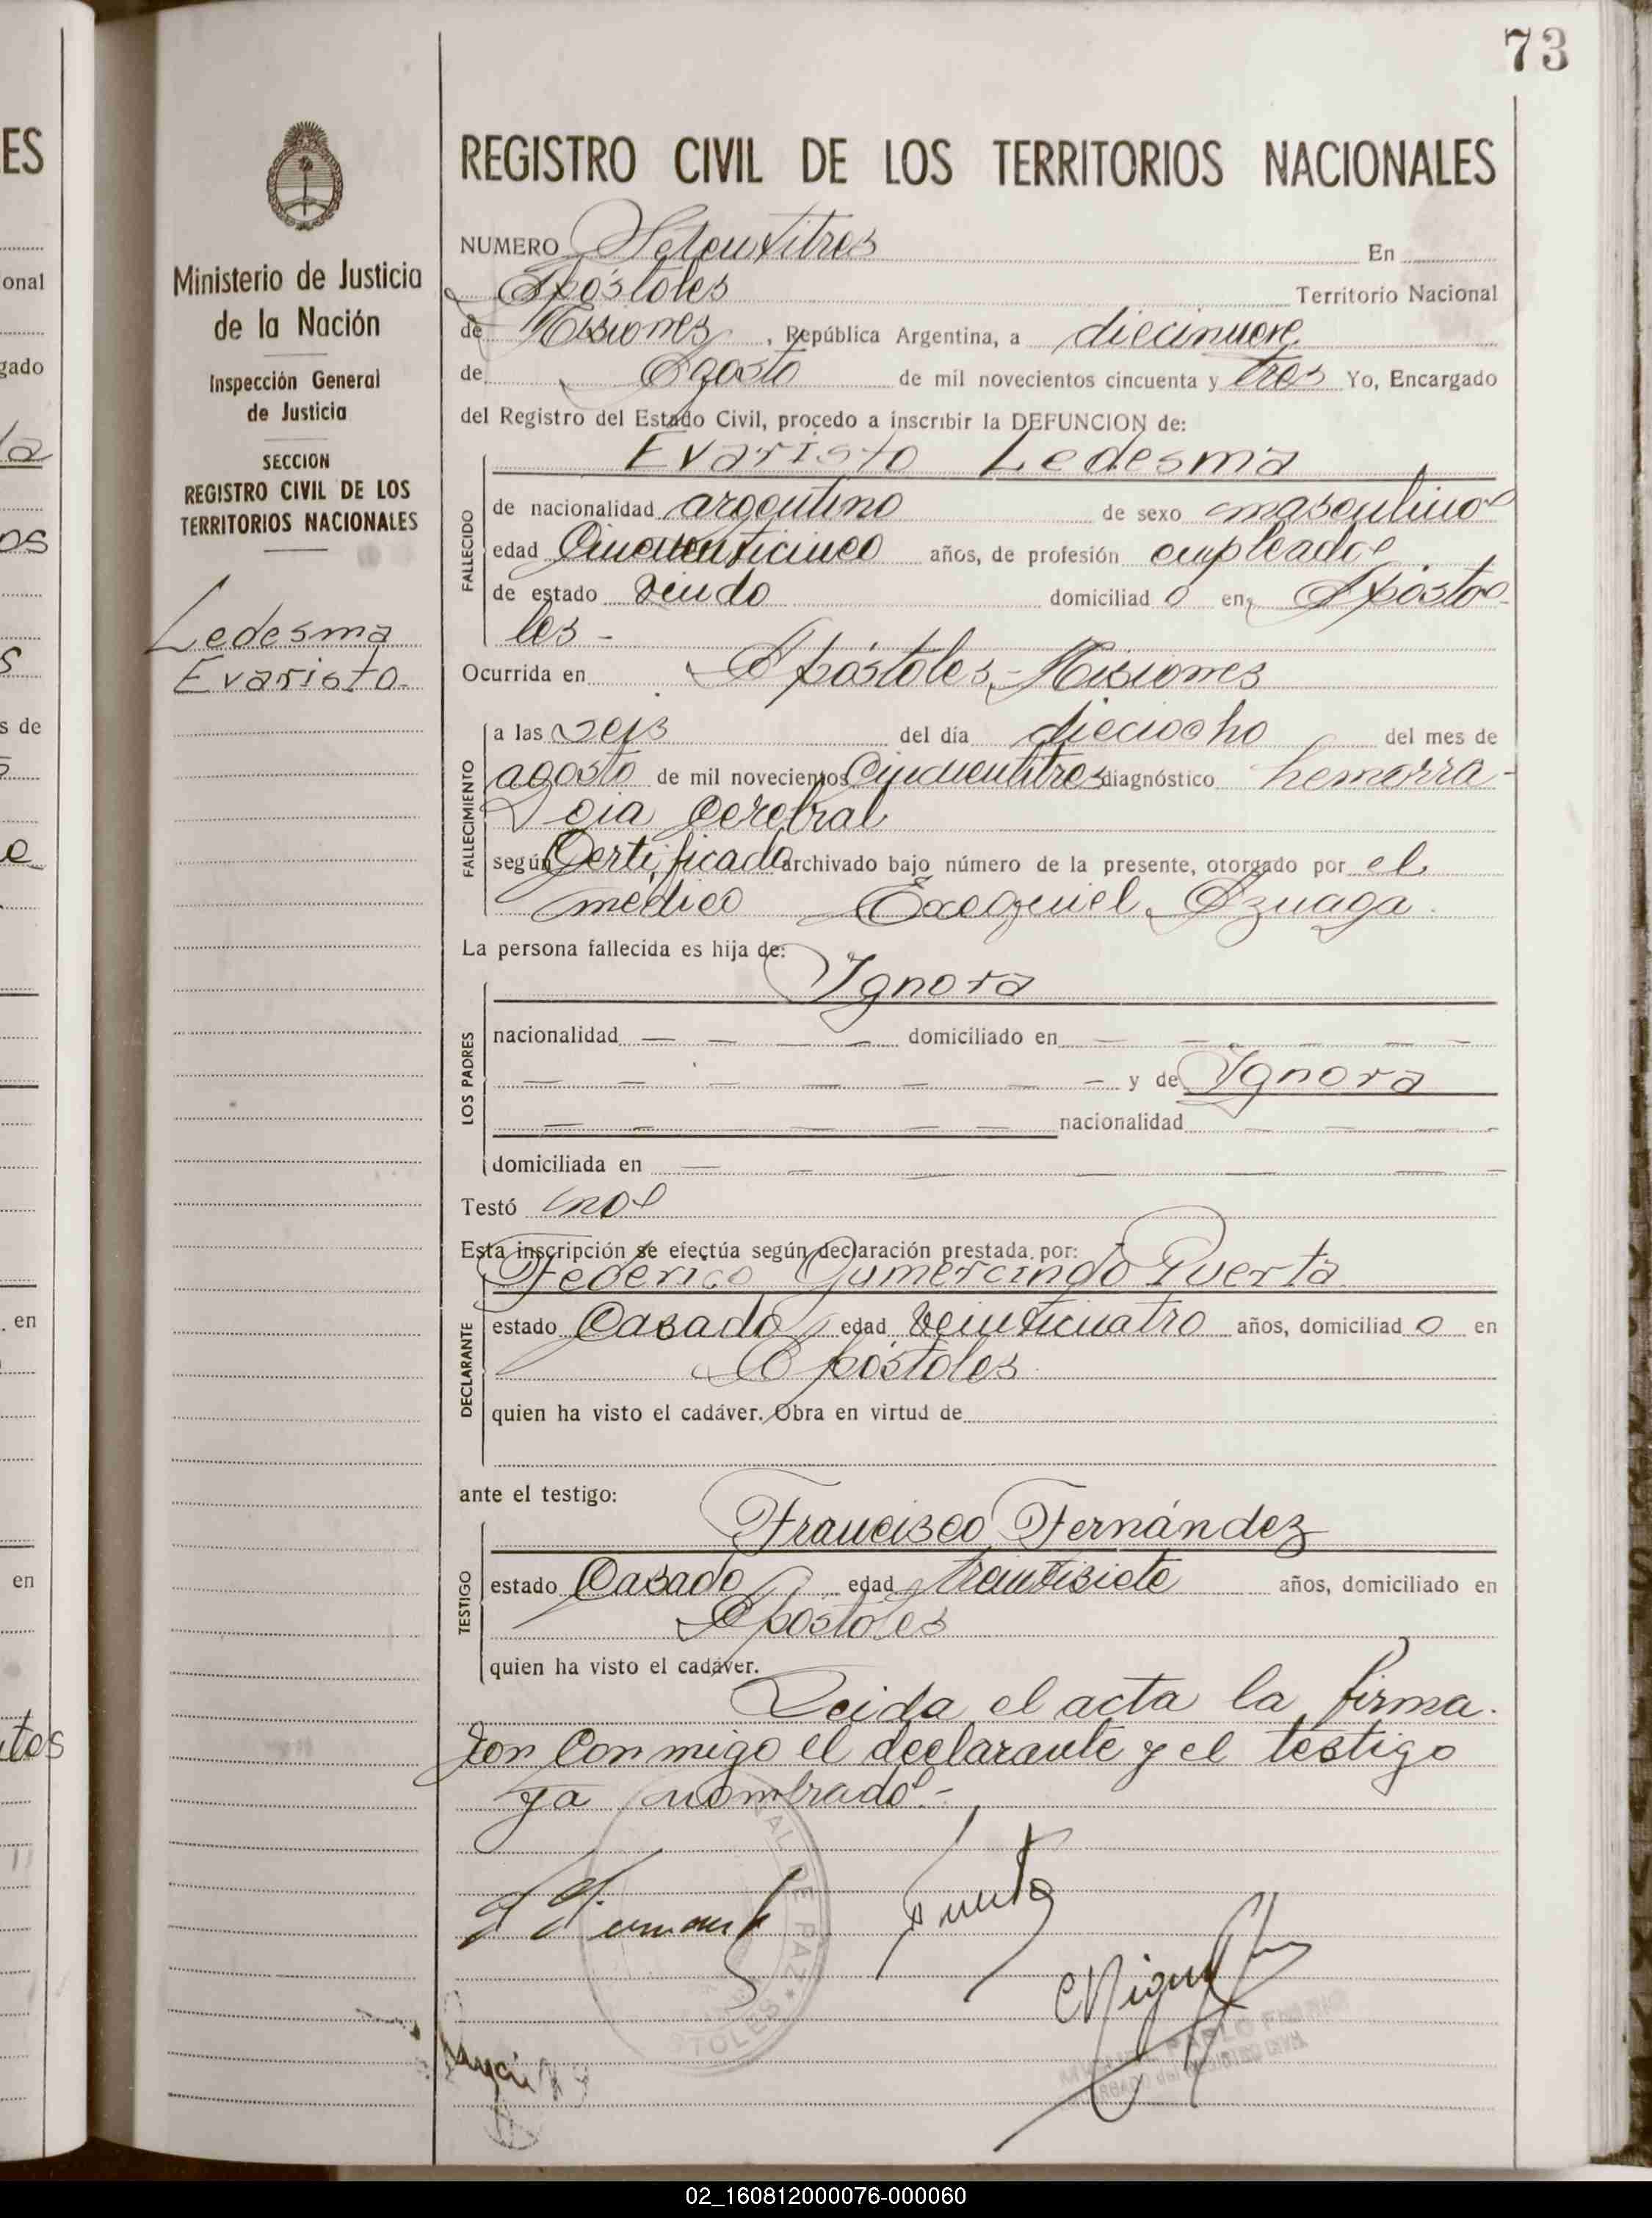 73
REGISTRO CIVIL DE LOS TERRITORIOS NACIONALES
Ministerio de Justicia
de la Nación
Inspección General
de Justicia
SECCION
REGISTRO CIVIL DE LOS
TERRITORIOS NACIONALES
Ledesma
Evaristo.
NUMERO Setentitres En
Apóstoles Territorio Nacional
de Misiones, República Argentina, a diecinueve
de Agosto de mil novecientos cincuenta y tres Yo, Encargado
del Registro del Estado Civil, procedo a inscribir la DEFUNCION de:
Evaristo Ledesma
FALLECIDO
de nacionalidad argentino de sexo masculino
edad Cincuenticinco años, de profesión empleado
de estado viudo domiciliado en Apósto-
les -
Ocurrida en Apóstoles, - Misiones
FALLECIMIENTO
a las seis del día dieciocho del mes de
agosto de mil novecientos Cincuentitres diagnóstico hemorra-
gia Cerebral
según Certificado archivado bajo número de la presente, otorgado por el
médico Exequiel Azuaga.
La persona fallecida es hija de:
Ignora
LOS PADRES
nacionalidad — — — — domiciliado en — — — — —
— — — — — — — y de Ignora
— — — — — — nacionalidad — — — —
domiciliada en — — — — — — —
Testó no
Esta inscripción se efectúa según declaración prestada por:
Federico Gumercindo Puerta
DECLARANTE
estado Casado edad veinticuatro años, domiciliado en
Apóstoles.
quien ha visto el cadáver. Obra en virtud de
ante el testigo:
Francisco Fernández
TESTIGO
estado Casado edad treintisiete años, domiciliado en
Apóstoles
quien ha visto el cadáver.
Leida el acta la firma-
ron Conmigo el declarante y el testigo
ya nombrado. -
AL DE PAZ
TOLES
02_160812000076-000060